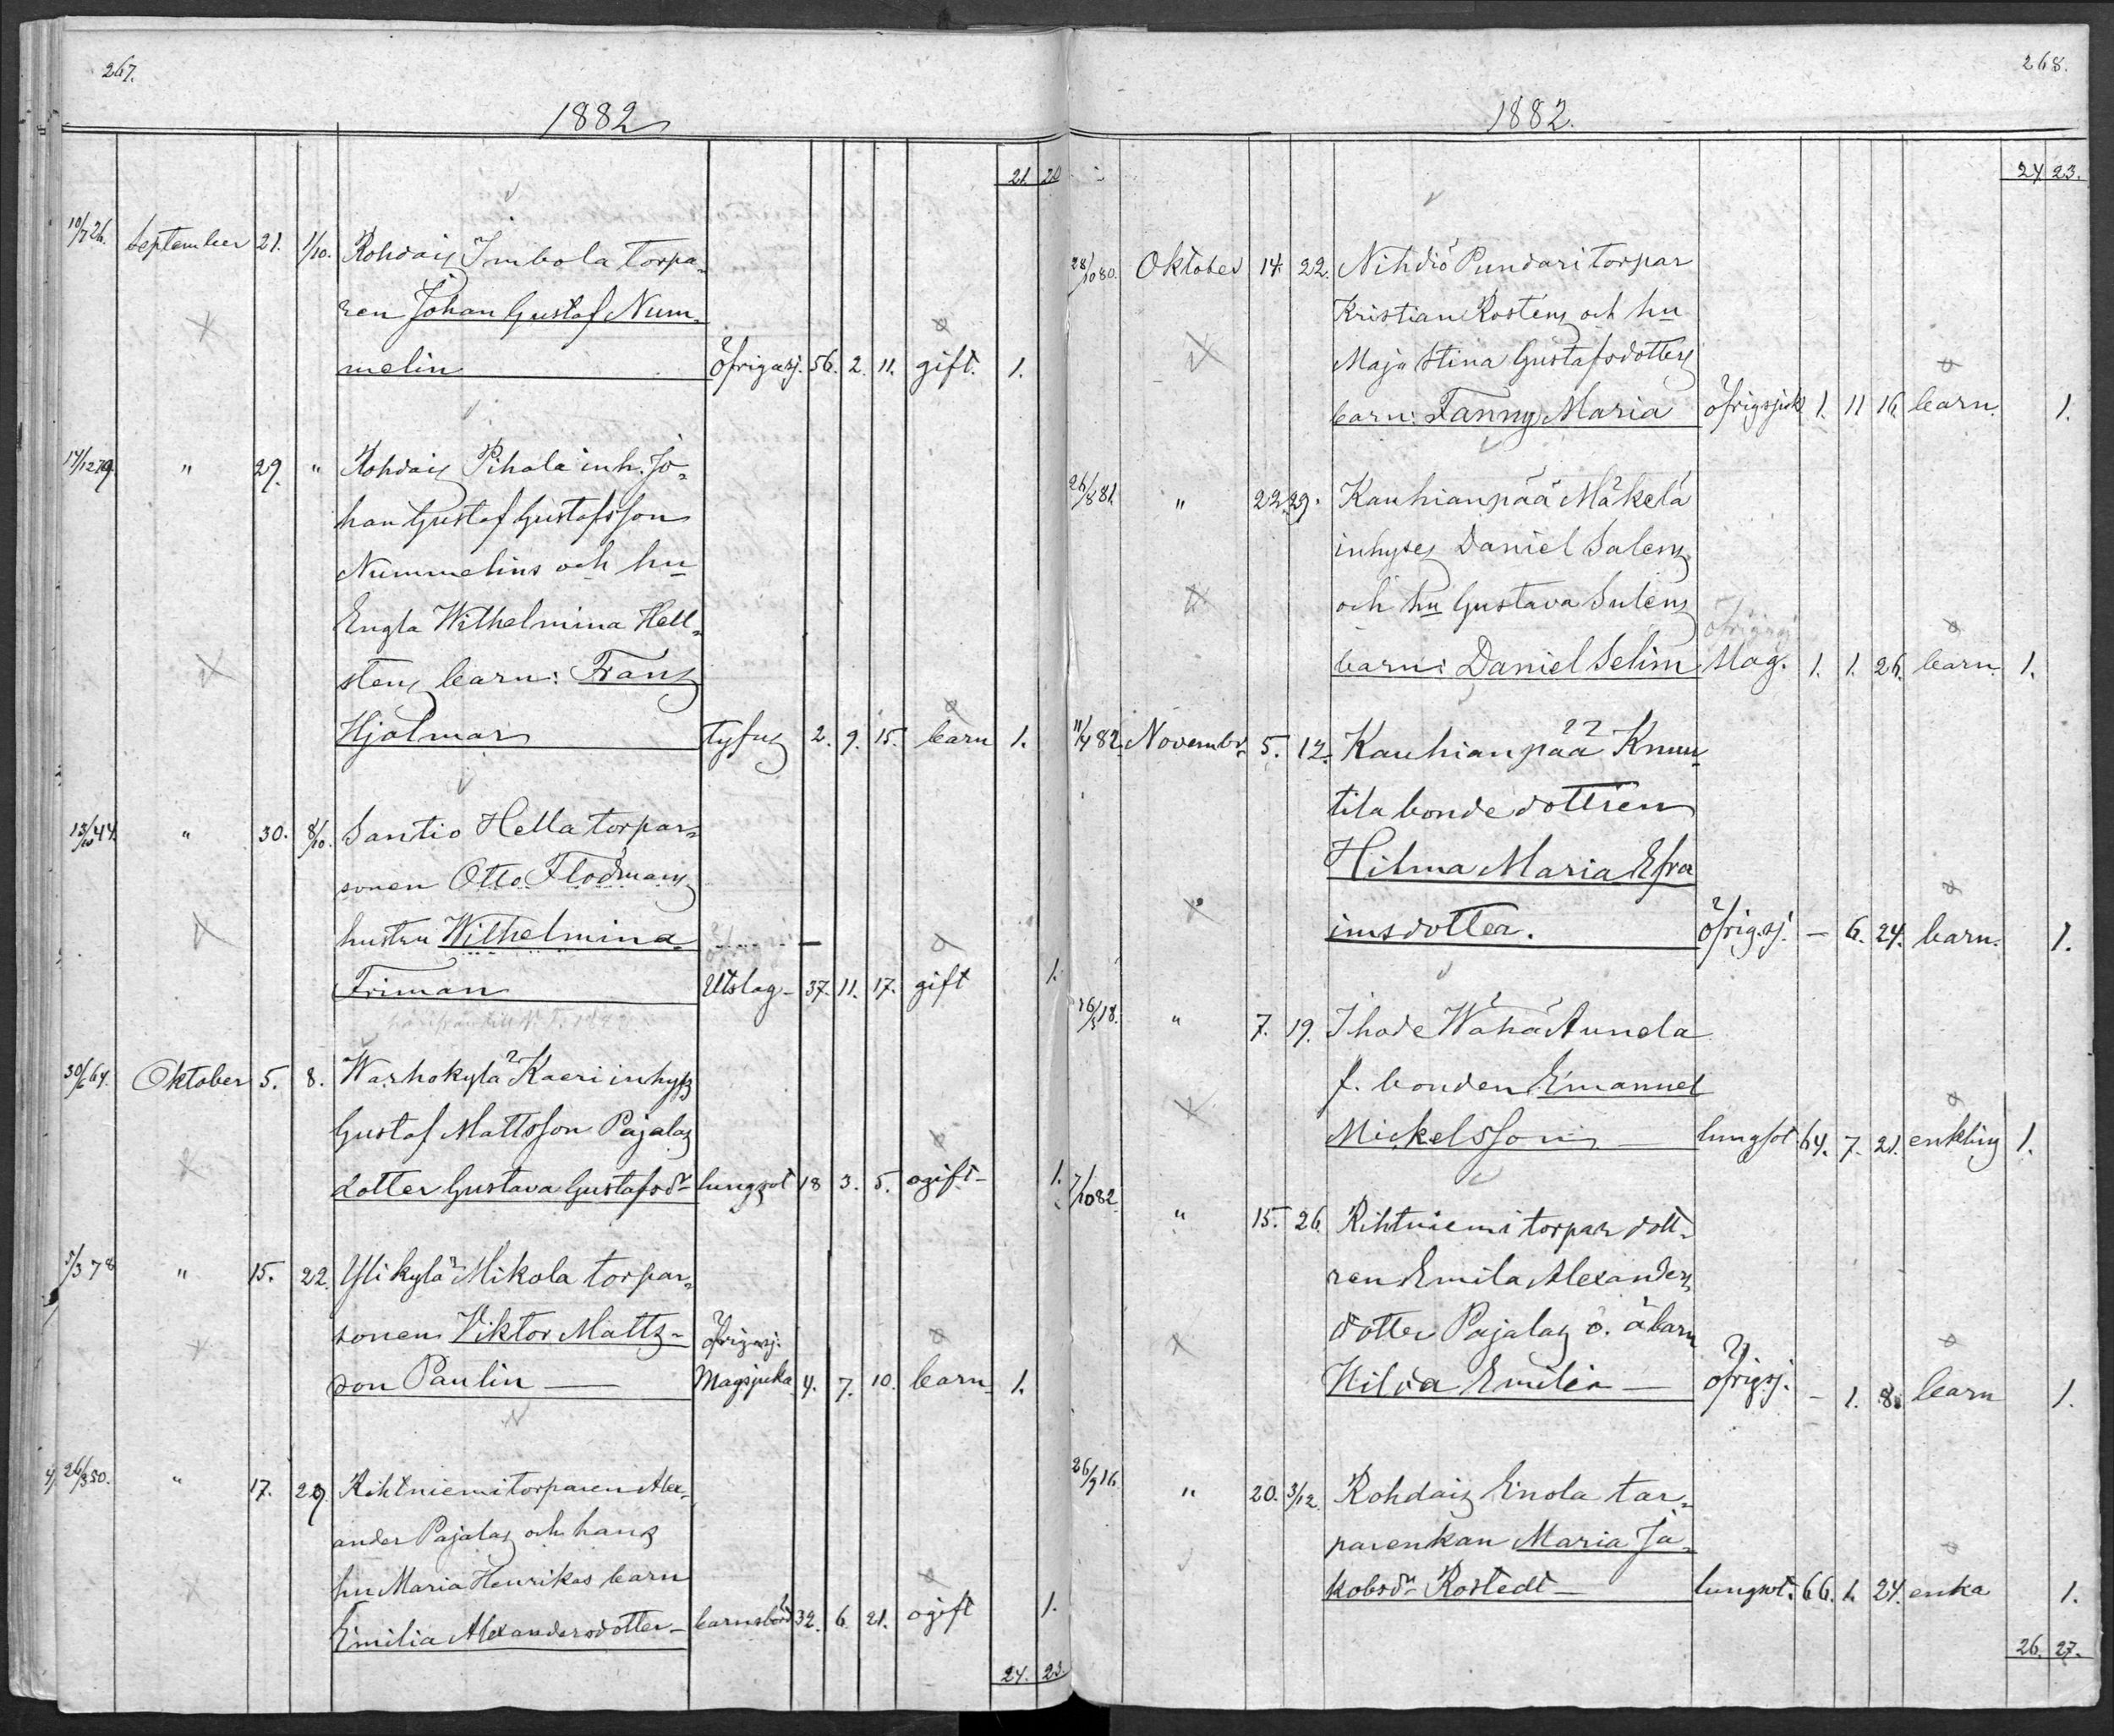 267.
1882
21. 20
10/7 26. September 21. 1/10. Rohdais Imbola torpa-
ren Johan Gustaf Num-
melin öfriga sj. 56. 2. 11. gift. 1.
14/12 79. " 29. " Rohdais Pihala inh. Jo-
han Gustaf Gustafsson
Nummelins och hu
Engla Wilhelmina Hell-
stens barn: Frans
Hjalmar tyfus 2. 9. 15. barn 1.
13/10 44. " 30. 8/10. Santio Hella torpar-
sonen Otto Flodmans
hustru Wilhelmina
Friman Utslag 37. 11. 17. gift 1.
30/6 64. Oktober 5. 8. Warhokylä Kaeri inhyss
Gustaf Mattsson Pajalas
dotter Gustava Gustafsdr lungsot 18 3. 5. ogift 1.
5/3 78 " 15. 22. Ylikylä Mikola torpar-
sonen Viktor Matts- öfriga sj.
son Paulin Magsjuka 4. 7. 10. barn 1.
26/3 50. " 17. 29. Rihtniemi torparen Alex-
ander Pajalas och hans
hu Maria Henrikas barn
Emilia Alexandersdotter barnsbörd 32. 6. 21. ogift 1.
24. 23.
268.
1882.
24 23.
28/10 80. Oktober 14. 22. Nihdiö Pundari torpar
Kristian Rostens och hu
Maja Stina Gustafsdotters
barn: Fanny Maria öfrig sjuk 1. 11 16. barn. 1.
26/8 81. " 22. 29. Kauhianpää Mäkelä
inhyses Daniel Salens
och hu Gustava Salens öfriga sj
barn: Daniel Selim Mag. 1. 1. 26. barn. 1.
11/4 82. Novembr 5. 12. Kauhianpää Knuu-
tila bonde dottren
Hilma Maria Efra
imsdotter. öfrig. sj. — 6. 24. barn. 1.
16/3 18. " 7. 19. Ihode Wähä Aunela
f. bonden Emanuel
Mickelsson lungsot 64. 7. 21. enkling 1.
7/10 82 " 15. 26. Rihtniemi torpar dott-
ren Emila Alexanders
dotter Pajalas o. ä barn
Hilda Emilia öfrig. sj. — 1. 8. barn 1.
26/9 16. " 20. 3/12. Rohdais Einola tor-
parenkan Maria Ja-
kobsdr Rostedt lungsot. 66. 1. 24. enka 1.
26. 27.